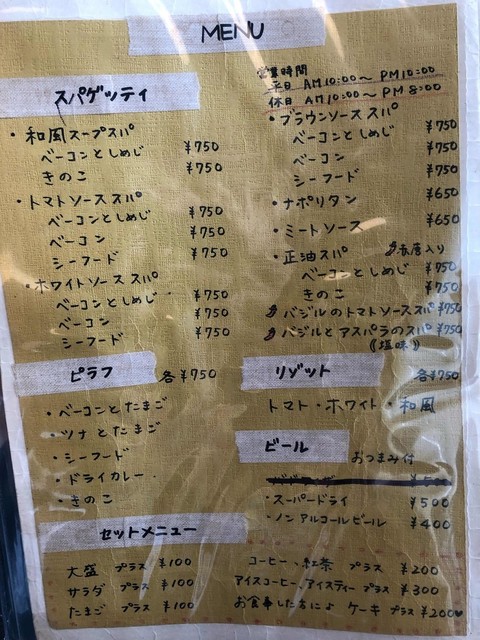 MENU
営業時間
平日 AM10:00〜PM10:00
休日 AM10:00〜PM8:00
スパゲッティ
・和風スープスパ
ベーコンとしめじ ¥750
きのこ ¥750
・トマトソーススパ
ベーコンとしめじ ¥750
ベーコン ¥750
シーフード ¥750
・ホワイトソーススパ
ベーコンとしめじ ¥750
ベーコン ¥750
シーフード ¥750
・ブラウンソーススパ
ベーコンとしめじ ¥750
ベーコン ¥750
シーフード ¥750
・ナポリタン ¥650
・ミートソース ¥650
・正油スパ 赤唐入り
ベーコンとしめじ ¥750
きのこ ¥750
バジルのトマトソーススパ ¥750
バジルとアスパラのスパ ¥750
《塩味》
ピラフ 各¥750
・ベーコンとたまご
・ツナとたまご
・シーフード
・ドライカレー
・きのこ
リゾット 各¥750
トマト・ホワイト・和風
ビール おつまみ付
¥500
・スーパードライ ¥500
・ノンアルコールビール ¥400
セットメニュー
大盛 プラス ¥100
サラダ プラス ¥100
たまご プラス ¥100
コーヒー・紅茶 プラス ¥200
アイスコーヒー、アイスティー プラス ¥300
お食事した方に ケーキ プラス ¥200♥